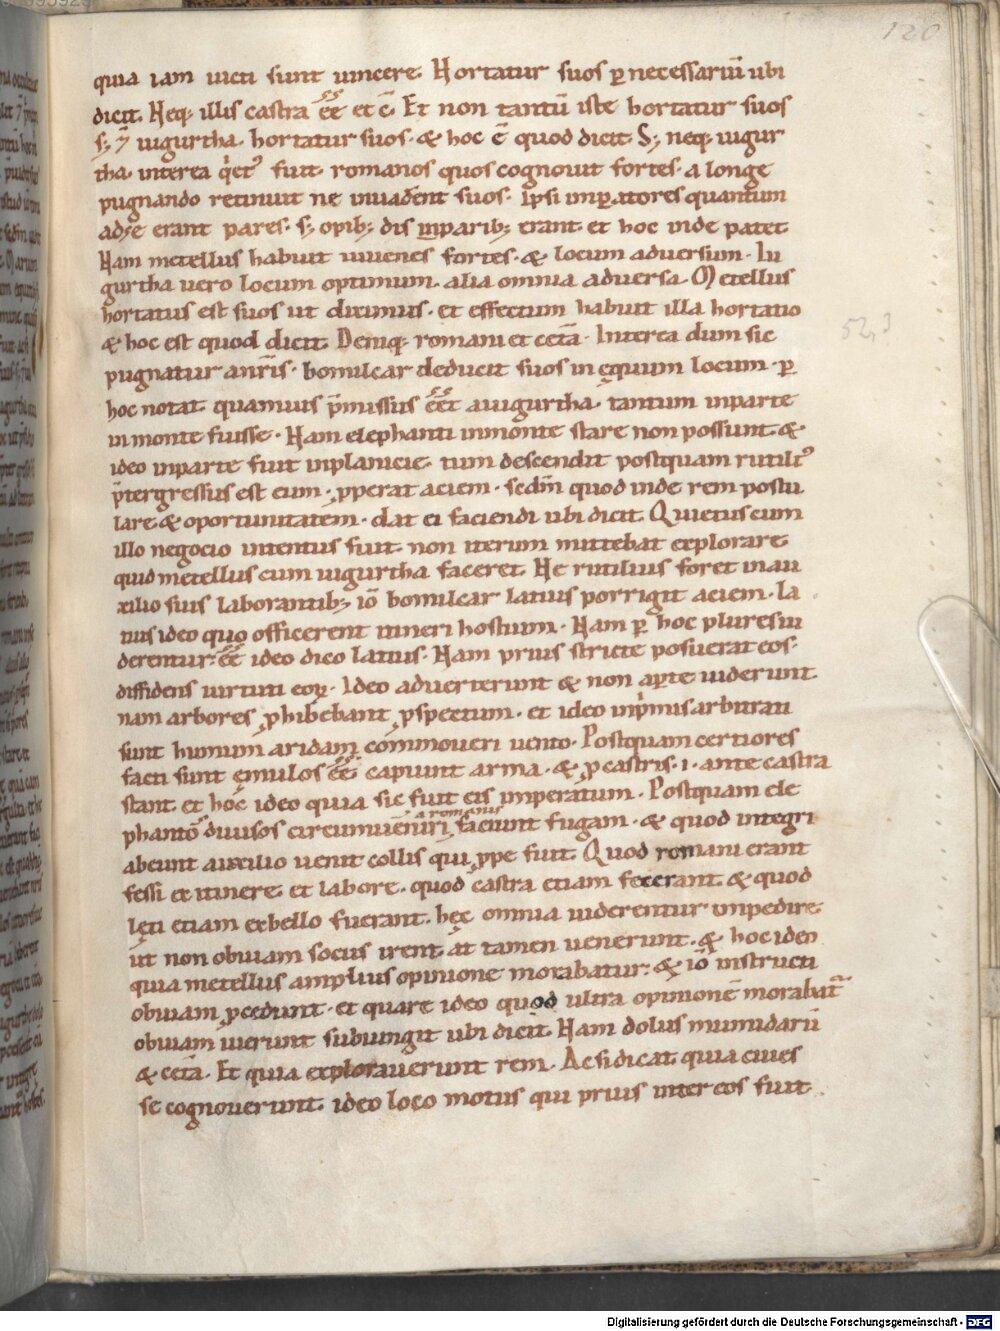 120
quia iam uicti sunt uincere. Hortatur suos ꝑ necessariū ubi
dicit. Neq; illis castra eēē et c̄. Et non tantū iste hortatur suos
s; ⁊ iugurtha. hortatur suos. & hoc ē quod dicit. S; neq; iugur
tha. interea fuit. romanos quos cognouit fortes. a longe
pugnando retinuit ne inuaderent suos. Ipsi imꝑatores quantum
ad se erant pares. s; opib; disinparib; erant. et hoc inde patet.
Nam metellus habuit iuuenes fortes. & locum aduersum. Iu
gurtha uero locum optimum. alia omnia aduersa. Metellus
hortatus est suos ut diximus. et effectum habuit illa hortatio
& hoc est quod dicit. Deniq; romani et cetā. Interea dum sic
pugnatur anrīs. bomilcar deducit suos in ęquum locum. ꝑ
hoc notat. quamuis p̄missus eēēt a iugurtha. tantum inparte
in monte fuisse. Nam elephanti inmonte stare non possunt. &
ideo inparte fuit inplanicie. tum descendit postquam rutili⁹
p̄tergressus est eum. ꝓperat aciem. sedm̄ quod inde rem postu
lare & oportunitatem. dat ei faciendi ubi dicit. Quietus cum
illo negocio intentus fuit. non iterum mittebat explorare.
quid metellus cum iugurtha faceret. Ne rutilius foret in au
xilio suis laborantib; iō bomilcar latius porrigit aciem. La
tius ideo quo officerent itineri hostium. Nam ꝑ hoc plures ui
derentur eēē ideo dico latius. Nam prius stricte posuerat eos.
diffidens uirtuti eoꝝ. Ideo aduerterunt & non aꝑte uiderunt.
nam arbores ꝓhibebant ꝓspectum. et ideo inp̄mis arbitrati
sunt humum aridam commoueri uento. Postquam certiores
facti sunt ęmulos eēē capiunt arma. & ꝓ castris. i. ante castra
stant. et hoc ideo quia sic fuit eis imperatum. Postquam ele
a romanis
phantos diuisos circumueniri faciunt fugam. & quod integri
abeunt auxilio uenit collis qui ꝓpe fuit. Quod romani erant
fessi et itinere. et labore. quod castra etiam fecerant. & quod
lęti etiam exbello fuerant. hęc omnia uiderentur impedire.
ut non obuiam sociis irent. at tamen uenerunt. & hoc ideo
quia metellus amplius opinione morabatur. & iō instructi
obuiam ꝓcedunt. et quare ideo quod ultra opinionē morabat᷑
obuiam ierunt subiungit ubi dicit. Nam dolus numidarū
& cetā. Et quia explorauerunt rem. Ac si dicat quia ciues
se cognouerunt. ideo loco motus qui prius inter eos fuit
Digitalisierung gefördert durch die Deutsche Forschungsgemeinschaft - DFG